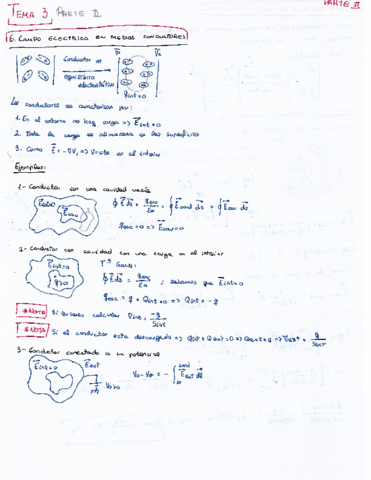 PARTE II
TEMA 3 PARTE II
6. CAMPO ELECTRICO EN MEDIOS CONDUCTORES
Conductor en
equilibrio
electrostático
Los conductores se caracterizan por:
1. En el interno no hay carga => E int = 0
2. Toda la carga se almacena en la superficie
3. Como E = -∇V, => V=cte en el interior
Ejemplos:
1- Conductor con una cavidad vacía
E cav
∮ E ds = q enc / ε0 = ∮ E cond ds = ∮ E cav ds
q enc = 0 => E cav = 0
2- Conductor con cavidad con una carga en el interior
E int = 0
q>0
Tª Gauss:
∮ E ds = q enc / ε0 ; sabemos que E int = 0
q enc = q + Q int = 0 => Q int = -q
*NOTA Si quieres calcular σ int = -q / S int
*NOTA Si el conductor esta descargado => Q int + Q ext = 0 => Q ext = q => σ ext = q / S ext
3- Conductor conectado a un potencial
E int = 0
E ext
V0 > 0